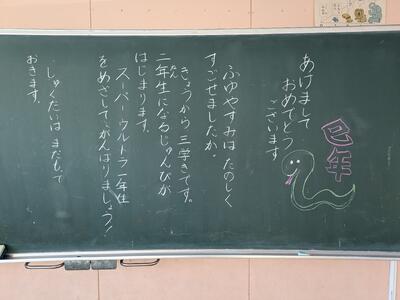 あけまして
おめでとう
ございます
巳年
ふゆやすみは たのしく
すごせましたか。
きょうから 三学きです。
二年生になるじゅんびが
ねん
はじまります。
スーパーウルトラ一年生
をめざして、がんばりましょう!
しゅくだいは まだもって
おきます。